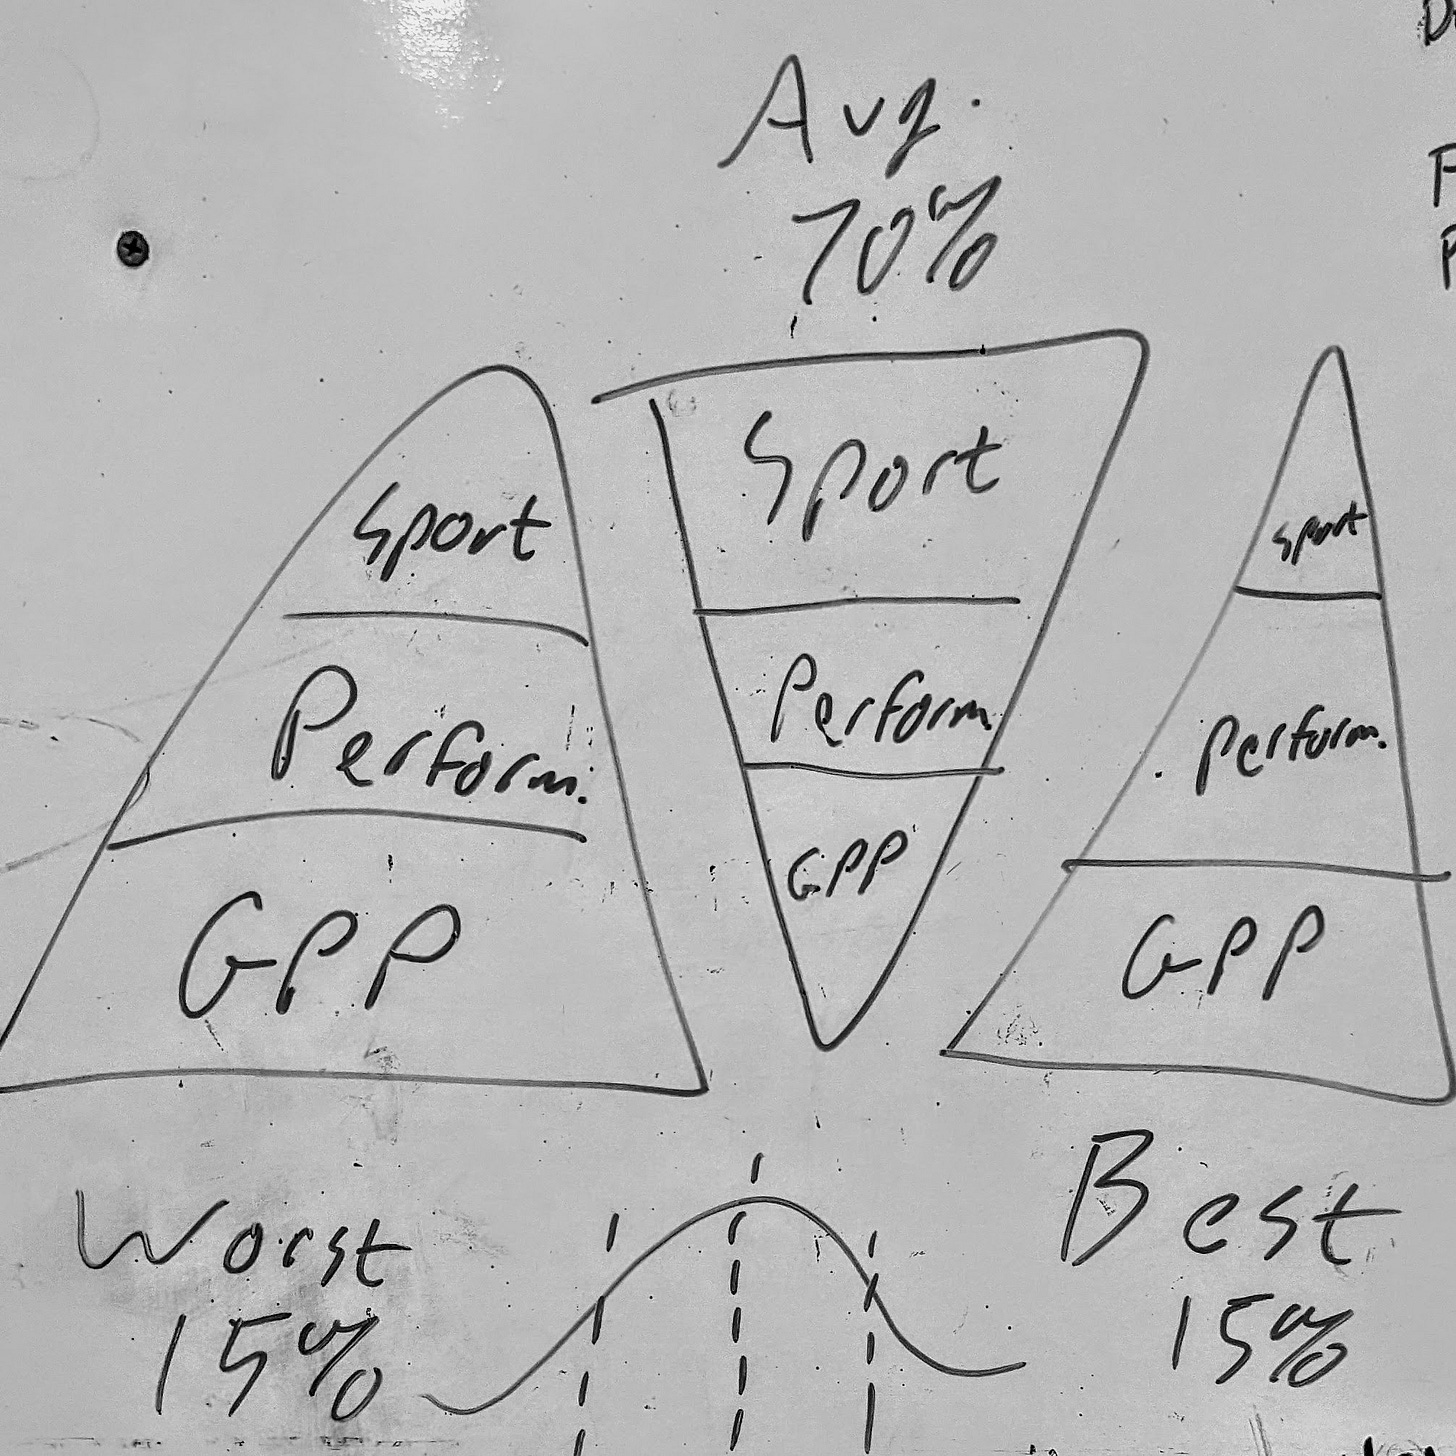 Avg.
70%
Sport
Perform.
GPP
Sport
Perform
GPP
Sport
Perform.
GPP
Worst
15%
Best
15%